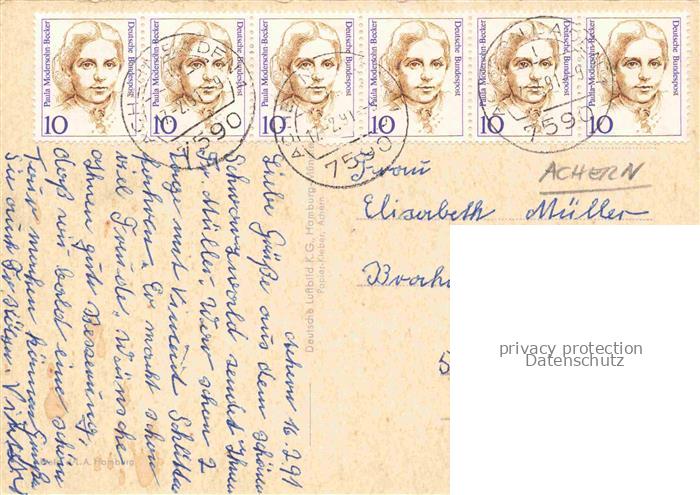 Deutsche Bundespost
Paula Modersohn-Becker
10
Deutsche Bundespost
Paula Modersohn-Becker
10
Deutsche Bundespost
Paula Modersohn-Becker
10
Deutsche Bundespost
Paula Modersohn-Becker
10
Deutsche Bundespost
Paula Modersohn-Becker
10
Deutsche Bundespost
Paula Modersohn-Becker
10
7590
7590
7590
ACHERN
Frau
Elisabeth Müller
privacy protection
Datenschutz
Deutsche Luftbild K.G., Hamburg
Papier-Kleber, Achern
Achern 16.2.91
Liebe Grüße aus dem schönen
Schwarzwald sendet Ihnen
Fr Müller. Wir schon 2
Tage mit Schlitten
fahren. Es macht schon
viel Freude. Wünsche
Ihnen gute Besserung,
daß wir bald eine schöne
machen können. Grüße
Sie auch Fr
L.A. Hamburg